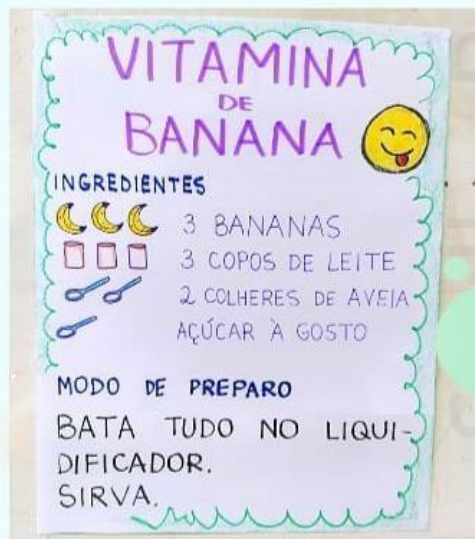 VITAMINA
DE
BANANA
INGREDIENTES
3 BANANAS
3 COPOS DE LEITE
2 COLHERES DE AVEIA
AÇÚCAR À GOSTO
MODO DE PREPARO
BATA TUDO NO LIQUI-
DIFICADOR.
SIRVA.